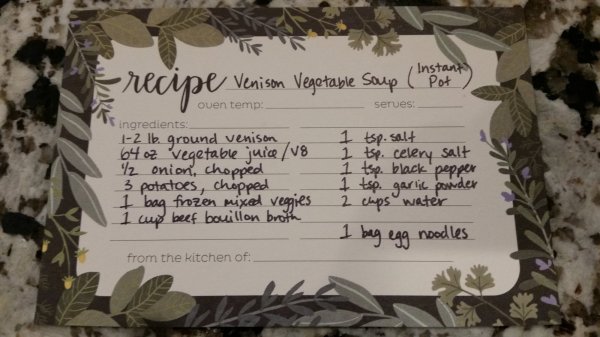 recipe Venison Vegetable Soup (Instant Pot)
oven temp: serves:
ingredients:
1-2 lb. ground venison
64 oz vegetable juice/V8
1/2 onion, chopped
3 potatoes, chopped
1 bag frozen mixed veggies
1 cup beef bouillon broth
1 tsp. salt
1 tsp. celery salt
1 tsp. black pepper
1 tsp. garlic powder
2 cups water
1 bag egg noodles
from the kitchen of: